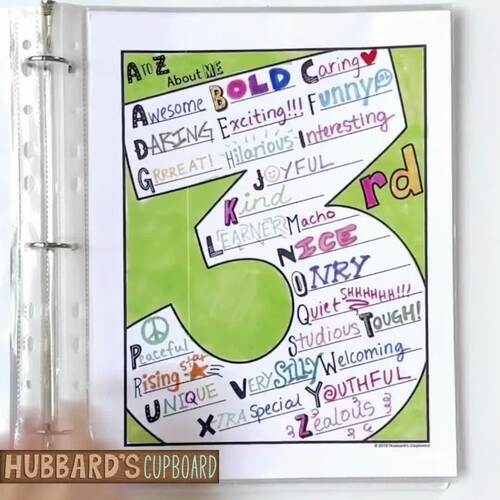 A TO Z
About ME
Awesome BOLD Caring
DARING Exciting!!! Funny LOL
GRRREAT! Hilarious Interesting
JOYFUL
Kind
LEARNER Macho
NICE
ONRY
rd
Quiet SHHHHHH!!!
Studious TOUGH!
Peaceful
Rising star
UNIQUE VERY SILLY Welcoming
X-TRA Special YOUTHFUL
Zealous
© 2019 Hubbard's Cupboard
HUBBARD'S CUPBOARD